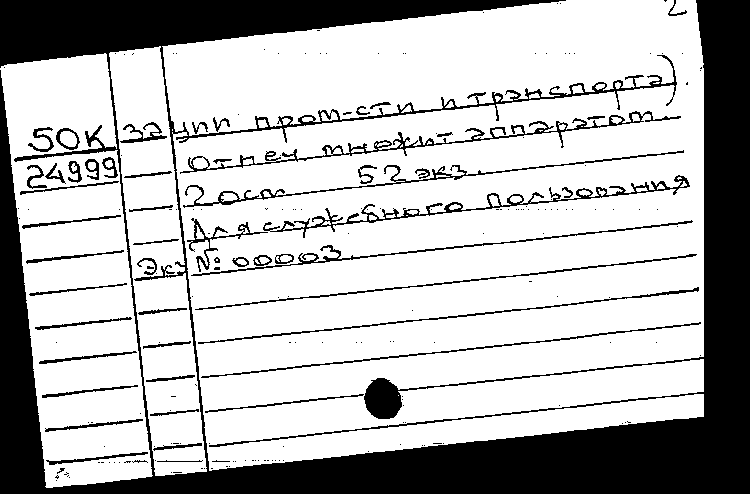 2
50К зацип пром-сти и транспорта).
24999 Отпеч множит аппаратом.
2 ост 52 экз.
Для служебного пользования
Экз № 00003